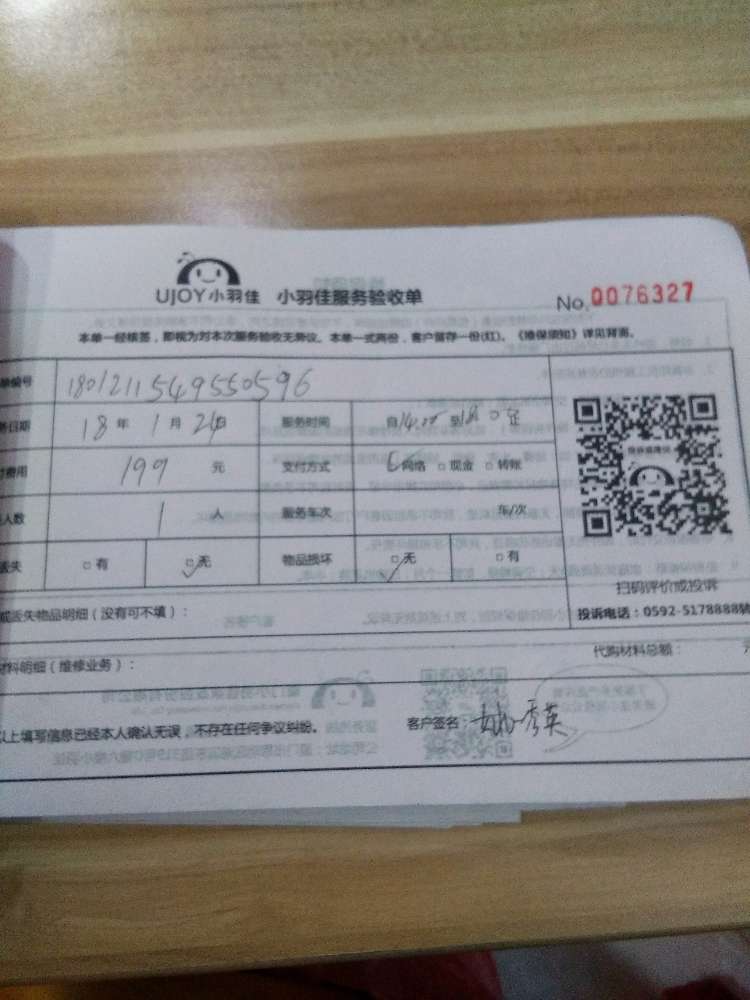 UJOY小羽佳 小羽佳服务验收单 No.0076327
本单一经核签，即视为对本次服务验收无异议。本单一式两份，客户留存一份(红)。《维保须知》详见背面。
单编号 1801211549550596
务日期 18年1月24日 服务时间 自14:00到18:0
费用 199元 支付方式 网络 □现金 □转账
人数 1人 服务车次 车/次
丢失 □有 □无 物品损坏 □无 □有
扫码评价或投诉
投诉电话：0592-5178888转
或丢失物品明细（没有可不填）：
材料明细（维修业务）： 代购材料总额：
以上填写信息已经本人确认无误，不存在任何争议纠纷。 客户签名：姚秀英